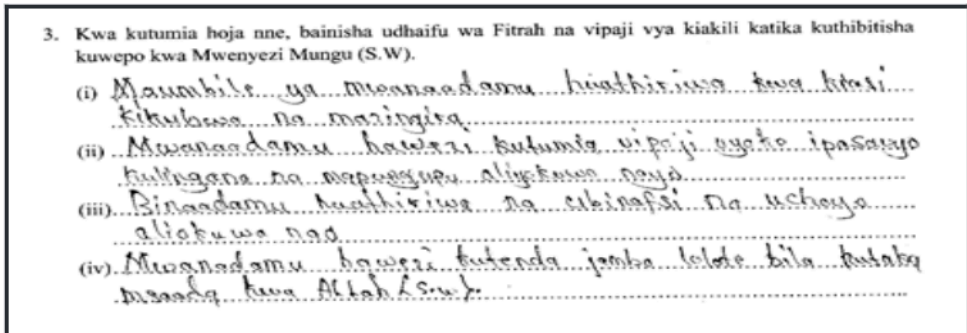 3. Kwa kutumia hoja nne, bainisha udhaifu wa Fitrah na vipaji vya kiakili katika kuthibitisha
kuwepo kwa Mwenyezi Mungu (S.W).
(i) Maumbile ya mwanaadamu huathiriwa kwa kiasi
kikubwa na mazingira
(ii) Mwanaadamu hawezi kutumia vipaji vyake ipasavyo
kulingana na mapungufu aliyokuwa nayo
(iii) Binaadamu huathiriwa na ubinafsi na uchoyo
aliokuwa nao
(iv) Mwanadamu hawezi kutenda jambo lolote bila kutaka
msaada kwa Allah (s.w).